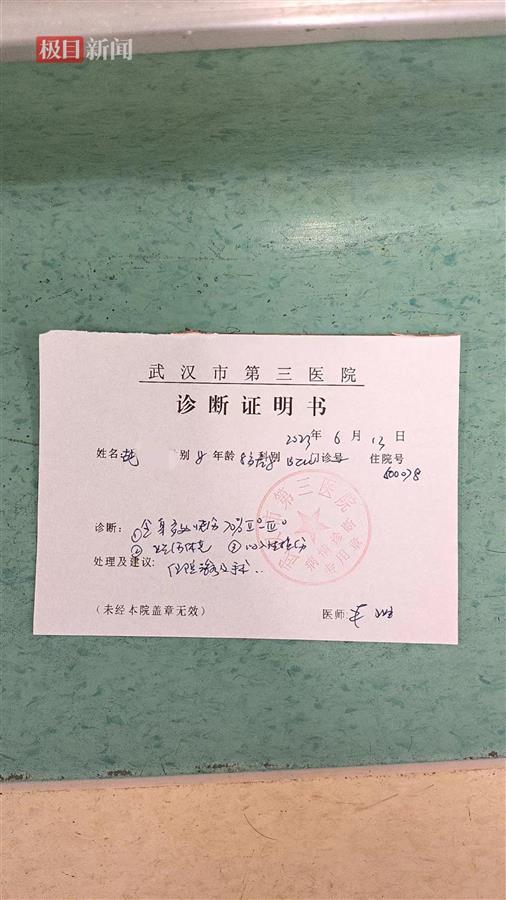 极目新闻
武汉市第三医院
诊断证明书
2023年6月13日
姓名 别 年龄 科别 门诊号 住院号
600078
诊断:①全身多处烧伤70%Ⅱ°-Ⅲ°
② ③吸入性损伤
处理及建议:
住院治疗及手术..
(未经本院盖章无效) 医师:
武汉市第三医院
病情诊断
专用章